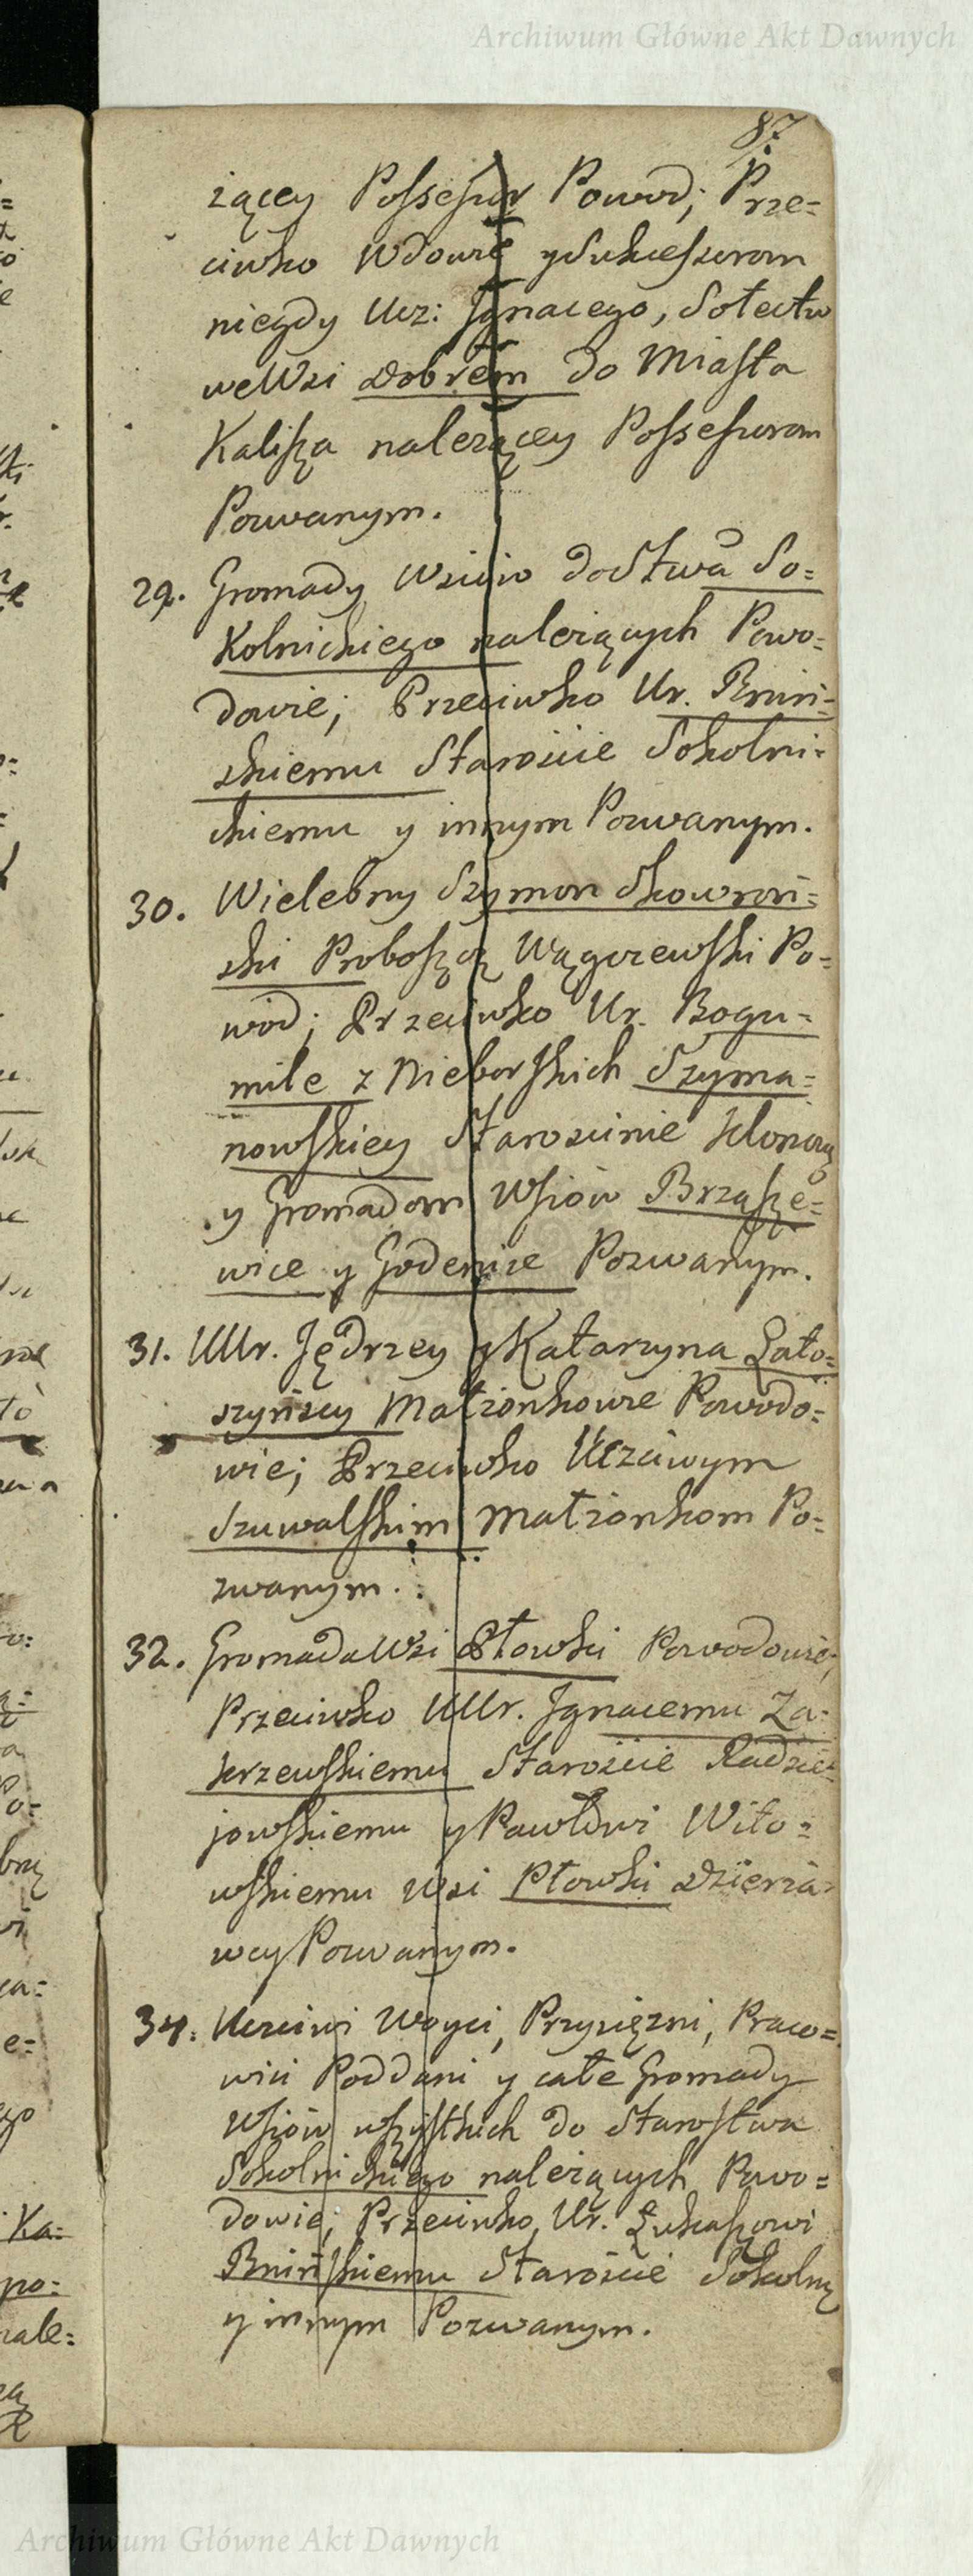 Archiwum Główne Akt Dawnych
87
żącey Possessor Powod; Prze=
ciwko Wdowie y Sukcessorom
niegdy Ucz: Ignacego, Sołectw
we Wsi Dobrem do Miasta
Kalisza należącey Possessorom
Pozwanym.
29. Gromady Wsiów do Stwa So=
kolnickiego należących Powo=
dowie; Przeciwko Ur. Bniń=
skiemu Starościе Sokolni=
ckiemu y innym Pozwanym.
30. Wielebny Szymon Skowroń=
ski Proboszcz Wągrzewski Po=
wod; Przeciwko Ur. Bogu=
mile z Nieborskich Szyma=
nowskiey Starościnie Klonow
y Gromadom Wsiów Brząsze=
wice y Godenice Pozwanym.
31. UUr. Jędrzey y Katarzyna Łato=
szyńscy Małżonkowie Powodo=
wie; Przeciwko Uczciwym
Szuwalskim Małżonkom Po=
zwanym.
32. Gromada Wsi Płowki Powodowie,
Przeciwko UUr. Ignacemu Za=
krzewskiemu Staroście Radzie=
jowskiemu y Pawłowi Wito=
wskiemu Wsi Płowki Dzierża=
wcy Pozwanym.
34. Uczciwi Woyci, Przysiężni, Praco=
wici Poddani y całe Gromady
Wsiów wszystkich do Starostwa
Sokolnickiego należących Powo=
dowie; Przeciwko Ur. Łukaszowi
Bnińskiemu Staroście Sokoln
y innym Pozwanym.
Archiwum Główne Akt Dawnych